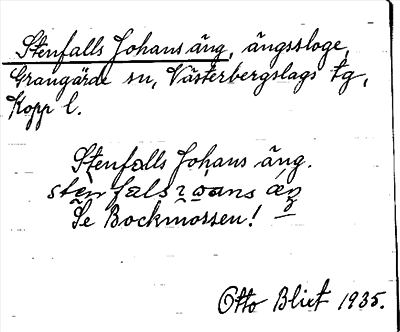 Stenfalls Johans äng, ängssloge,
Grangärde sn, Västerbergslags tg,
Kopp l.
Stenfalls Johans äng.
Se Bockmossen!
Otto Blixt 1935.